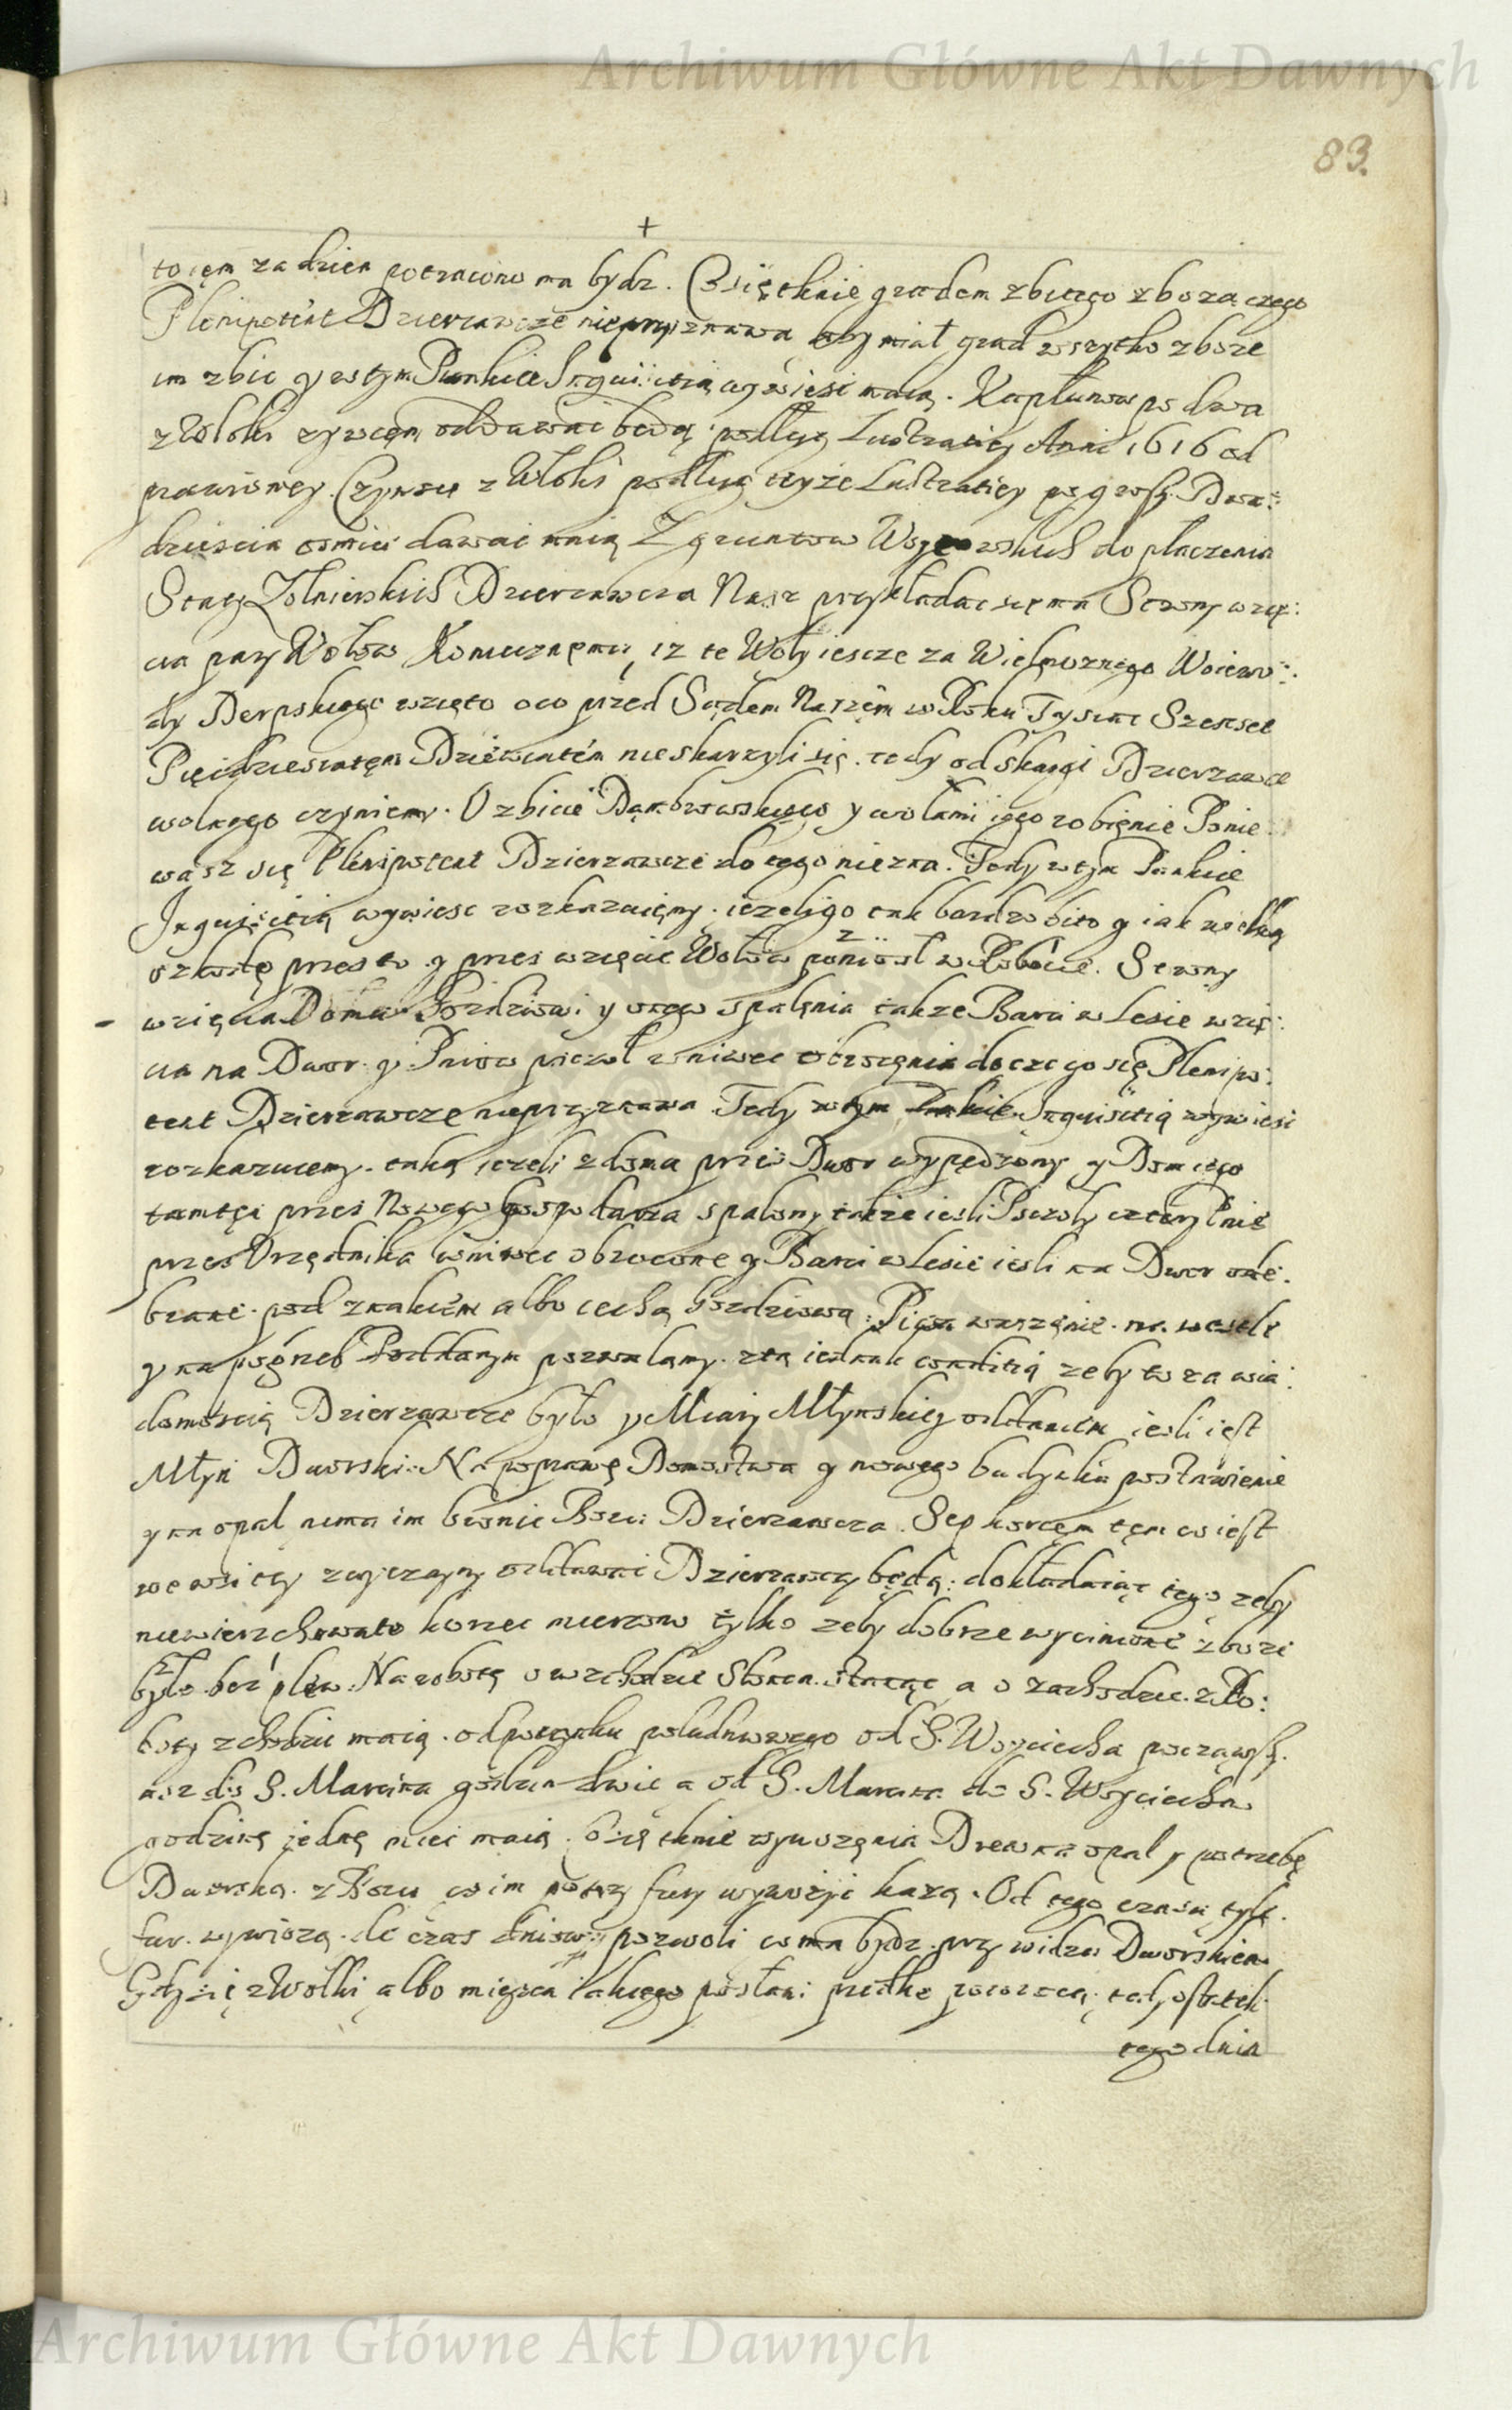 Archiwum Główne Akt Dawnych
83.
+
to ięm za dzien potrącono ma bydz. Wzięthnie gradem zbitego zboza czego
Plenipotent Dzierzawcze nie przyznawa aby miał grad wszytko zboze
im zbic y w tym Punkcie Inquisitią wywiesi maią. Kapłunow po dwa
z Włoki zywcem oddawai będą podług Lustratiey Anni 1616 od
prawioney. Czynszu z Włoki podług teyze Lustratiey po g rossy. Dwa:
dziescia osmiu dawai maią Z gruntow do płaczenia
Stacy Zolnierskich Dzierzawcza Nasz przykładac się ma Strony wzię:
cia pary Wołow Komiecznemu, iz te Woły iescze za Wielmoznego Woiewo:
dy Derpskiego wzięto o co przed Sądem Naszem w Roku Tysiąc Szescset
Pięcdziesiątem Dziewiątem nie skarzyli się. tedy od skargi Dzierzawce
wolnego czyniemy. O zbicie Dąmbrowskiego y wołami iego robięnie Ponie
wasz się Plenipotent Dzierzawcze do tego niezna. Tedy w tym Punkcie
Inquisitią wywiesc rozkazuięmy. iezeli go tak bardzo bito y iak wielką
szkodę przes to y przes wzięcie Wołow poniosł w Robocie. Strony
- wzięcia Domu Pozdziowi y onego spalęnia takze Barci w Lesie wzię:
cia na Dwor y Pniow pczoł wniwec obrocęnia do czego się Plenipo:
tent Dzierzawcze nieprzyznawa Tedy w tym Punkcie Inquisitią wywiesi
rozkazuiemy. taką iezeli z domu przes Dwor wypędzony y Dom iego
tamtęi przes Nowego gospodarza spalony takze iesli Psczoły cztery Pnie
przes Urzędnika wniwec obrocone y Barci w Lesie iesli na Dwor ode:
brane. pod znakiem albo cechą Pozdziową. Piwa warzęnie. na wesele
y na pogrzeb Poddanym pozwalamy. z tą iednak conditią zeby to za wia:
domoscią Dzierzawcze było y Miary Młynskiey oddaniem iesli iest
Młyn Dworski. Na poprawę Domostwa y nowego budynku postawienie
y na opal nima im bronic Boru Dzierzawcza. Sep korcem tęm co iest
we wsi tey zwyczayny oddawai Dzierzawcy będą: dokładaiąc tego zeby
niewierzchowato korzec mierzono tylko zeby dobrze wycinione zboze
było bez plew. Na robotę o wschodzie Słonca. stacąc a o zachodzie. z Ro:
boty zchodzic maią. odpoczynku południowego od S. Woyciecha począwszy.
asz do S. Marcina godzin dwie a od S. Marcina do S. Woyciecha
godzinę iednę miei maią. Wzięthnie wywozęnia Drew na opal y potrzebę
Dworską. z Boru co im po trzy fury wywozyi kazą. Od tego czasu tyle
fur. wywiozą. ile czas dniowy pozwoli co ma bydz. przy widzu Dworskiem
Gdy się z Wołki albo mieysca iakiego posłani prędko powrocą. tedy ostatek
tego dnia
Archiwum Główne Akt Dawnych